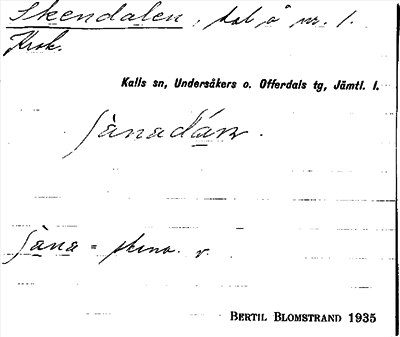 Skendalen, dal å nr. 1.
Krok.
Kalls sn, Undersåkers o. Offerdals tg, Jämtl. l.
ʃànadáɴ.
ʃàna = skena. v.
BERTIL BLOMSTRAND 1935